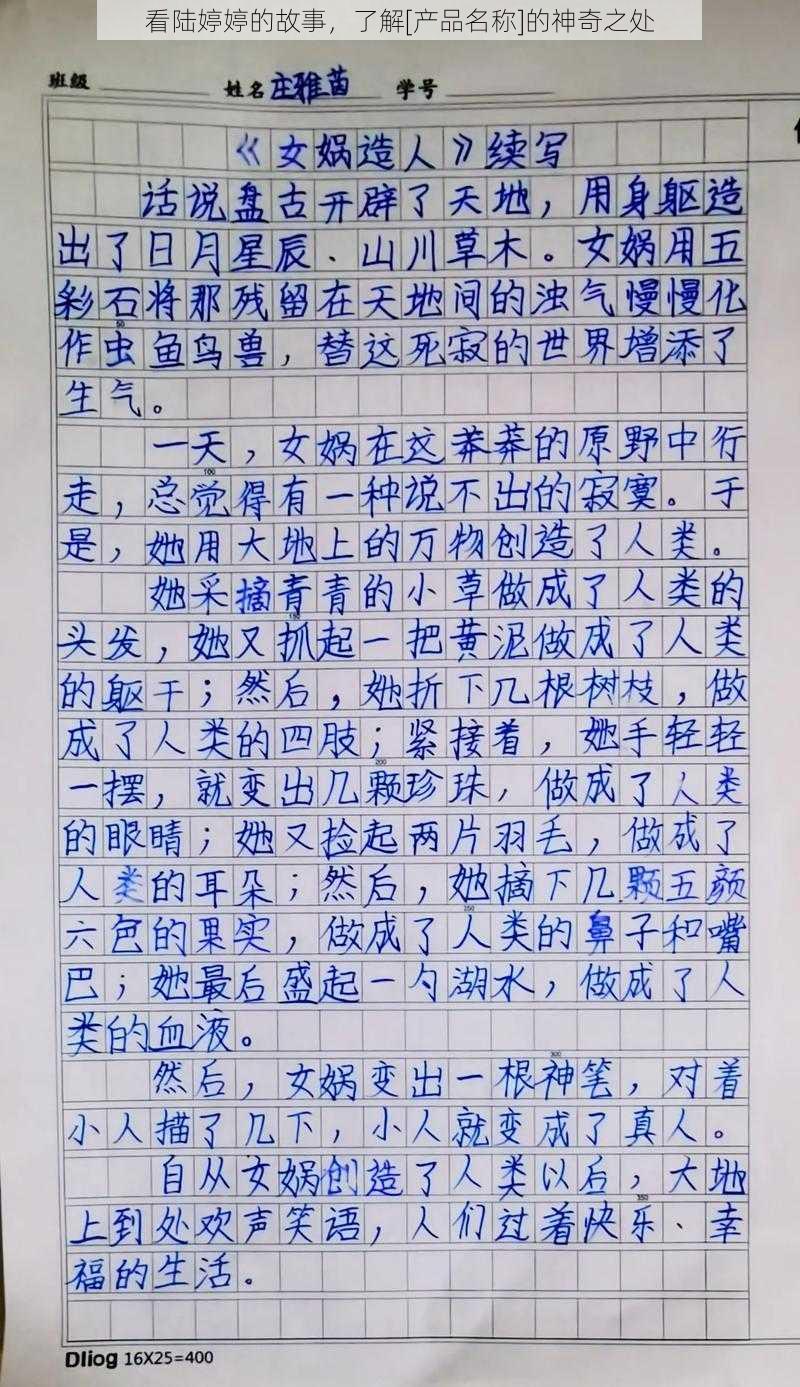 看陆婷婷的故事，了解[产品名称]的神奇之处
班级 姓名 庄雅茵 学号
《女娲造人》续写
话说盘古开辟了天地，用身躯造
出了日月星辰、山川草木。女娲用五
彩石将那残留在天地间的浊气慢慢化
50
作虫鱼鸟兽，替这死寂的世界增添了
生气。
一天，女娲在这莽莽的原野中行
100
走，总觉得有一种说不出的寂寞。于
是，她用大地上的万物创造了人类。
她采摘青青的小草做成了人类的
150
头发，她又抓起一把黄泥做成了人类
的躯干；然后，她折下几根树枝，做
成了人类的四肢；紧接着，她手轻轻
200
一摆，就变出几颗珍珠，做成了人类
的眼睛；她又捡起两片羽毛，做成了
人类的耳朵；然后，她摘下几颗五颜
250
六色的果实，做成了人类的鼻子和嘴
巴；她最后盛起一勺湖水，做成了人
类的血液。
300
然后，女娲变出一根神笔，对着
小人描了几下，小人就变成了真人。
自从女娲创造了人类以后，大地
350
上到处欢声笑语，人们过着快乐、幸
福的生活。
Dliog 16X25=400